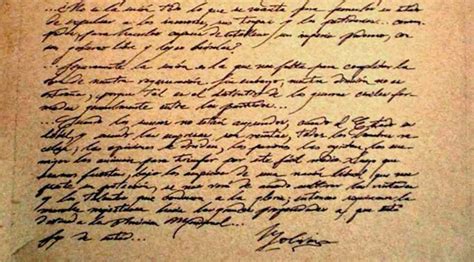 ...¿No es la unión todo lo que se necesita para ponerlos en estado
de expulsar a los, sus tropas y los partidarios...
para hacerlos capaces de establecer un imperio poderoso, con
un gobierno libre y leyes
Seguramente la unión es la que nos falta para completar la
obra de nuestra regeneración. Sin embargo, nuestra división no es
extraña, porque tal es el distintivo de las guerras civiles for
madas generalmente entre dos partidos...
...Cuando los sucesos no están asegurados, cuando el Estado es
débil, y cuando las empresas son remotas, todos los hombres va
cilan; las opiniones se dividen, las pasiones las agitan, los ene
migos las animan para triunfar por este fácil medio. Luego que
seamos fuertes, bajo los auspicios de una nación liberal que nos
preste su protección, se nos verá de acuerdo cultivar las virtudes
y los talentos que conducen a la gloria; entonces seguiremos la
marcha majestuosa hacia las grandes prosperidades a que está
destinada la América Meridional...
Soy de usted...
Bolívar